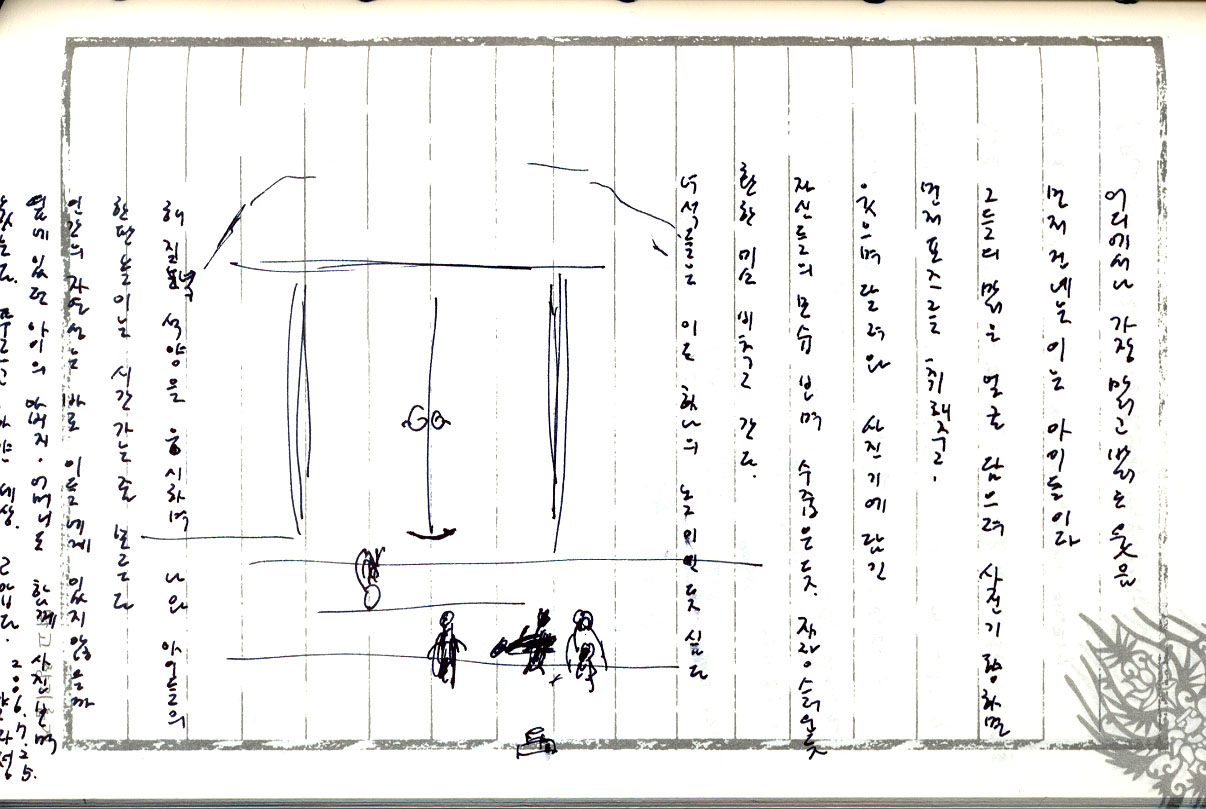 어디에서나 가장 맑고 밝은 웃음
먼저 건네는 이는 아이들이다
그들의 맑은 얼굴 담으려 사진기 향하면
먼저 포즈를 취해주고.
웃으며 달려와 사진기에 담긴
자신들의 모습 보며 수줍은듯. 자랑스러운듯
환한 미소 비추고 간다.
녀석들은 이도 하나의 놀이인 듯 싶다
해 질녘 석양을 응시하며 나와 아이들의
한판 놀이는 시간 가는 줄 모른다
인간의 자연성은 바로 이들에게 있지 않을까
옆에 있던 아이의 아버지. 어머니도 함께 사진 보며
세상.
2006. 7. 25.